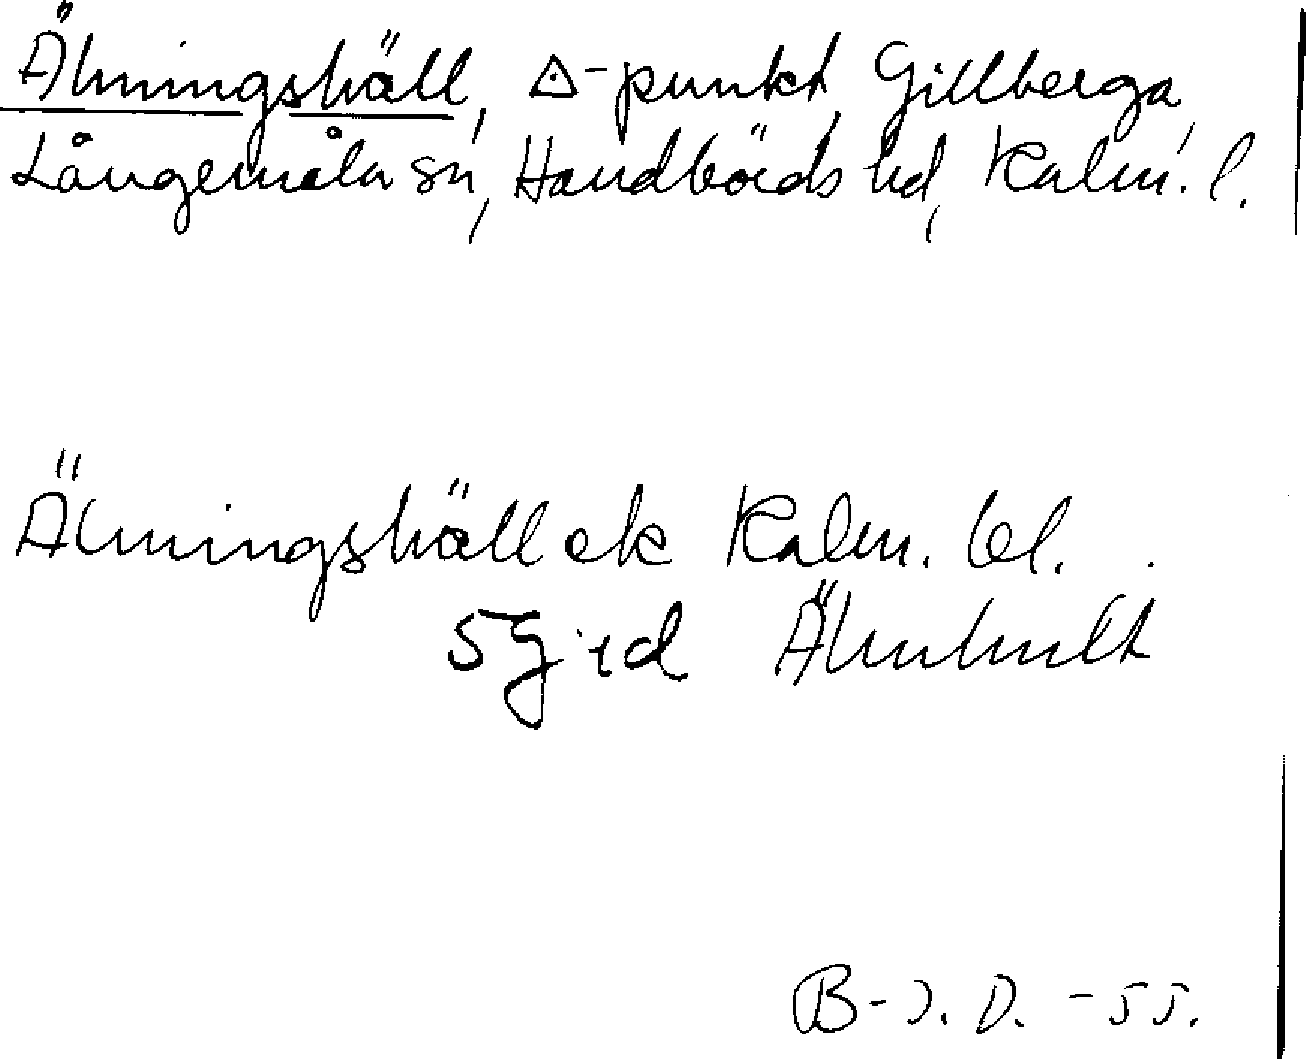 Älmingshäll, △-punkt, Gillberga,
Långemåla sn, Handbörds hd, Kalm. l.
Älmingshäll ek Kalm. bl.
5 g id Älmhult
B-J. D. -55.